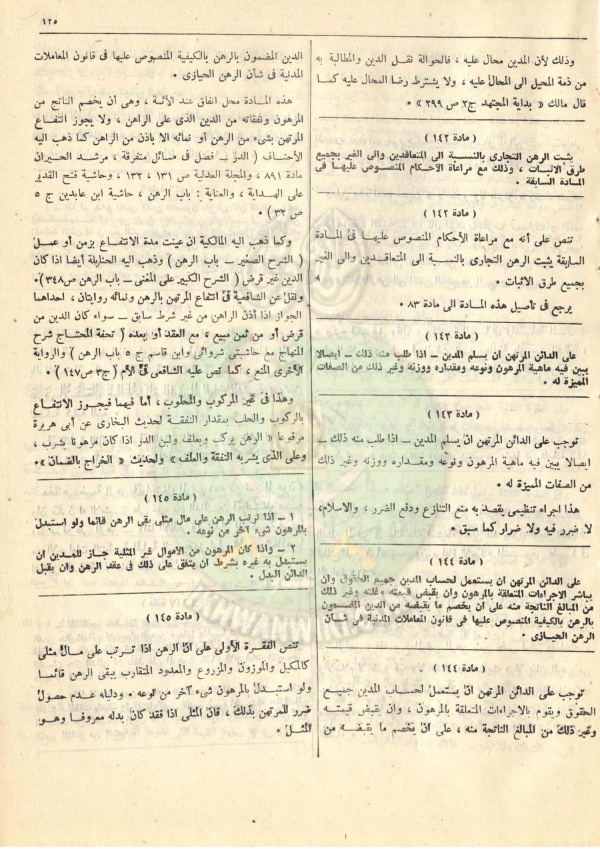 ١٢٥
وذلك لأن المدين محال عليه ، فالحوالة نقل الدين والمطالبة به
من ذمة المحيل الى المحال عليه ، ولا يشترط رضا المحال عليه كما
قال مالك « بداية المجتهد ج٢ ص ٢٩٩ » .
( مادة ١٤٢ )
يثبت الرهن التجارى بالنسبة الى المتعاقدين والى الغير بجميع
طرق الاثبات ، وذلك مع مراعاة الأحكام المنصوص عليها فى
المادة السابقة .
( مادة ١٤٢ )
تنص على أنه مع مراعاة الأحكام المنصوص عليها فى المادة
السابقة يثبت الرهن التجارى بالنسبة الى المتعاقدين والى الغير
بجميع طرق الاثبات .
يرجع فى تأصيل هذه المادة الى مادة ٨٣ .
( مادة ١٤٣ )
على الدائن المرتهن أن يسلم المدين ــ اذا طلب منه ذلك ــ ايصالا
يبين فيه ماهية المرهون ونوعه ومقداره ووزنه وغير ذلك من الصفات
المميزة له .
( مادة ١٤٣ )
توجب على الدائن المرتهن أن يسلم المدين ــ اذا طلب منه ذلك ــ
ايصالا يبين فيه ماهية المرهون ونوعه ومقداره ووزنه وغير ذلك
من الصفات المميزة له .
هذا اجراء تنظيمى يقصد به منع التنازع ودفع الضرر ، والاسلام،
لا ضرر فيه ولا ضرار كما سبق .
( مادة ١٤٤ )
على الدائن المرتهن أن يستعمل لحساب المدين جميع الحقوق وان
يباشر الاجراءات المتعلقة بالمرهون وان يقبض قيمته وغلته وغير ذلك
من المبالغ الناتجة منه على أن يخصم ما يقبضه من الدين المضمون
بالرهن بالكيفية المنصوص عليها فى قانون المعاملات المدنية فى شأن
الرهن الحيازى .
( مادة ١٤٤ )
توجب على الدائن المرتهن أن يستعمل لحساب المدين جميع
الحقوق ويقوم بالاجراءات المتعلقة بالمرهون ، وان يقبض قيمته
وغير ذلك من المبالغ الناتجة منه ، على أن يخصم ما يقبضه من
الدين المضمون بالرهن بالكيفية المنصوص عليها فى قانون المعاملات
المدنية فى شأن الرهن الحيازى .
هذه المادة محل اتفاق عند الأئمة ، وهى أن يخصم الناتج من
المرهون ونفقاته من الدين الذى على الراهن ، ولا يجوز انتفاع
المرتهن بشىء من الرهن أو نمائه الا باذن من الراهن كما ذهب اليه
الأحناف ( الدر ــ فصل فى مسائل متفرقة ، مرشد الحيران
مادة ٨٩١ ، والمجلة العدلية ص ١٣١ ، ١٣٢ ، وحاشية فتح القدير
على الهداية ، والعناية : باب الرهن ، حاشية ابن عابدين ج ٥
ص ٣٣ ) .
وكما ذهب اليه المالكية ان عينت مدة الانتفاع بزمن أو عمل
( الشرح الصغير ــ باب الرهن ) وذهب اليه الحنابلة أيضا اذا كان
الدين غير قرض ( الشرح الكبير على المغنى ــ باب الرهن ص٣٤٨ ).
ونقل عن الشافعية فى انتفاع المرتهن بالرهن ونمائه روايتان ، احداهما
الجواز اذا أذن الراهن من غير شرط سابق ــ سواء كان الدين من
قرض أو من ثمن مبيع ، مع العقد أو بعده ( تحفة المحتاج شرح
المنهاج مع حاشيتى شروانى وابن قاسم ج ٥ باب الرهن ) والرواية
الأخرى المنع ، كما نص عليه الشافعى فى الأم ( ج٣ ص١٤٧ ) .
وهذا فى غير المركوب والمحلوب ، أما فيهما فيجوز الانتفاع
بالركوب والحلب بمقدار النفقة لحديث البخارى عن أبى هريرة
مرفوعا « الرهن يركب ويعلف ولبن الدر اذا كان مرهونا يشرب ،
وعلى الذى يشربه النفقة والعلف » ولحديث « الخراج بالضمان ».
( مادة ١٤٥ )
١ ــ اذا ترتب الرهن على مال مثلى بقى الرهن قائما ولو استبدل
بالمرهون شىء آخر من نوعه .
٢ ــ واذا كان المرهون من الأموال غير المثلية جاز للمدين أن
يستبدل به غيره بشرط ان يتفق على ذلك فى عقد الرهن وان يقبل
الدائن البدل .
( مادة ١٤٥ )
تنص الفقرة الأولى على أن الرهن اذا ترتب على مال مثلى
كالمكيل والموزون والمزروع والمعدود المتقارب يبقى الرهن قائما
ولو استبدل بالمرهون شىء آخر من نوعه . ودليله عدم حصول
ضرر للمرتهن بذلك ، فان المثلى اذا فقد كان بدله معروفا وهو
المثل .